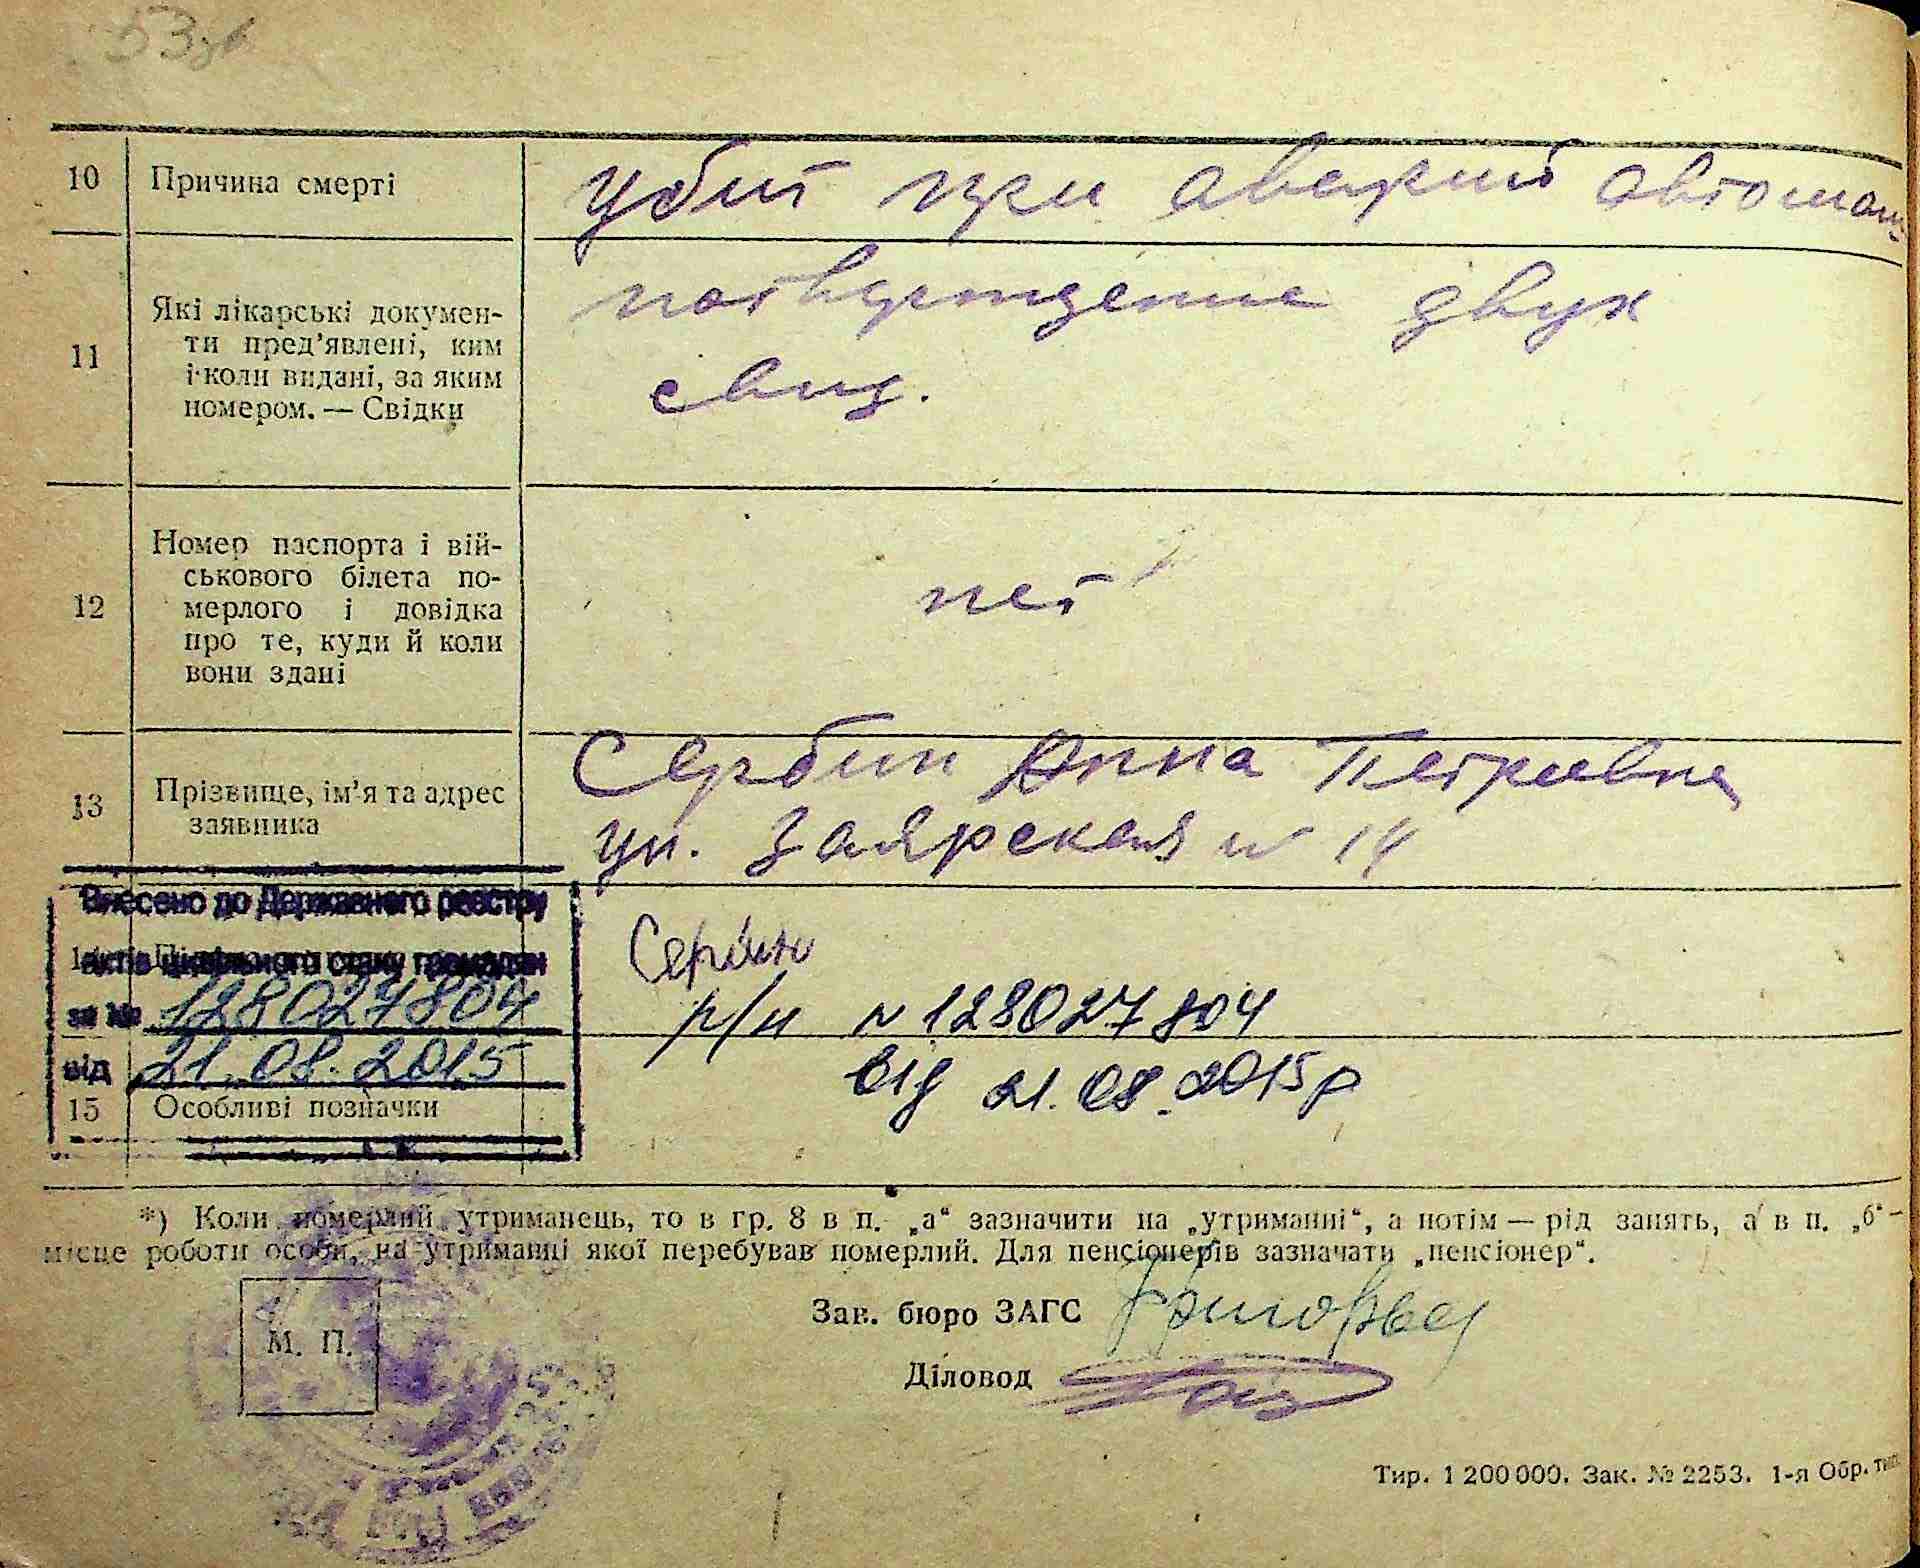 53зв
10 Причина смерті убит при аварий автомаш
11 Які лікарські докумен-
ти пред'явлені, ким
і коли видані, за яким
номером. — Свідки
потверждение двух
свид.
12 Номер паспорта і вій-
ськового білета по-
мерлого і довідка
про те, куди й коли
вони здані
нет
13 Прізвище, ім'я та адрес
заявника
Сербин Анна Петривна
ул. Заярская № 14
Внесено до Державного реєстру
актів цивільного стану громадян
за № 128027804
від 21.08.2015
Сербин
р/н № 128027804
від 21.08.2015р
15 Особливі позначки
*) Коли померлий утриманець, то в гр. 8 в п. „а“ зазначити на „утриманні“, а потім — рід занять, а в п. „б“ —
місце роботи особи, на утриманні якої перебував померлий. Для пенсіонерів зазначати „пенсіонер“.
М. П.
Зав. бюро ЗАГС
Діловод
Тир. 1 200 000. Зак. № 2253. 1-я Обр. тип.